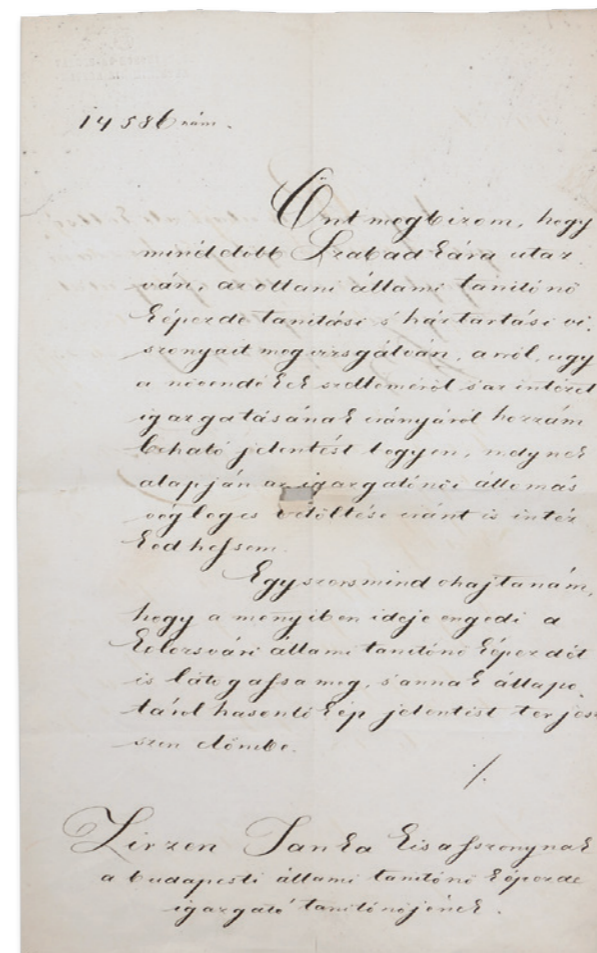 14586 szám.
Önt megbizom, hogy
mindelőbb Szabadkára utaz-
ván, az ottani állami tanitónő
képezde tanitási s háztartási vi-
szonyait megvizsgálván, arról, ugy
a növendékek szelleméről s az intézet
igazgatásának irányáról hozzám
beható jelentést tegyen, melynek
alapján az igazgatónői állomás
végleges betöltése iránt is intéz
kedhessem.
Egyszersmind ohajtanám,
hogy a menyiben ideje engedi a
kolozsvári állami tanitónő képezdét
is látogassa meg, s annak állapo-
táról hasonlókép jelentést terjes
szen előmbe.
./.
Zirzen Janka kisasszonynak
a budapesti állami tanitónő képezde
igazgató tanitónőjének.